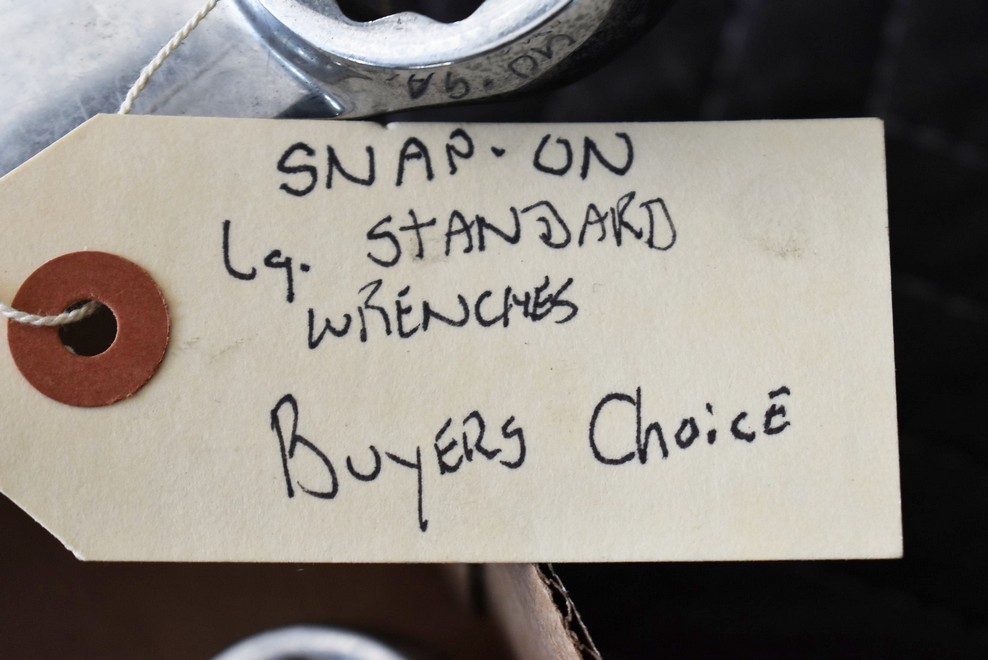 SNAP-ON
Lg. STANDARD
WRENCHES
BUYERS ChoicE